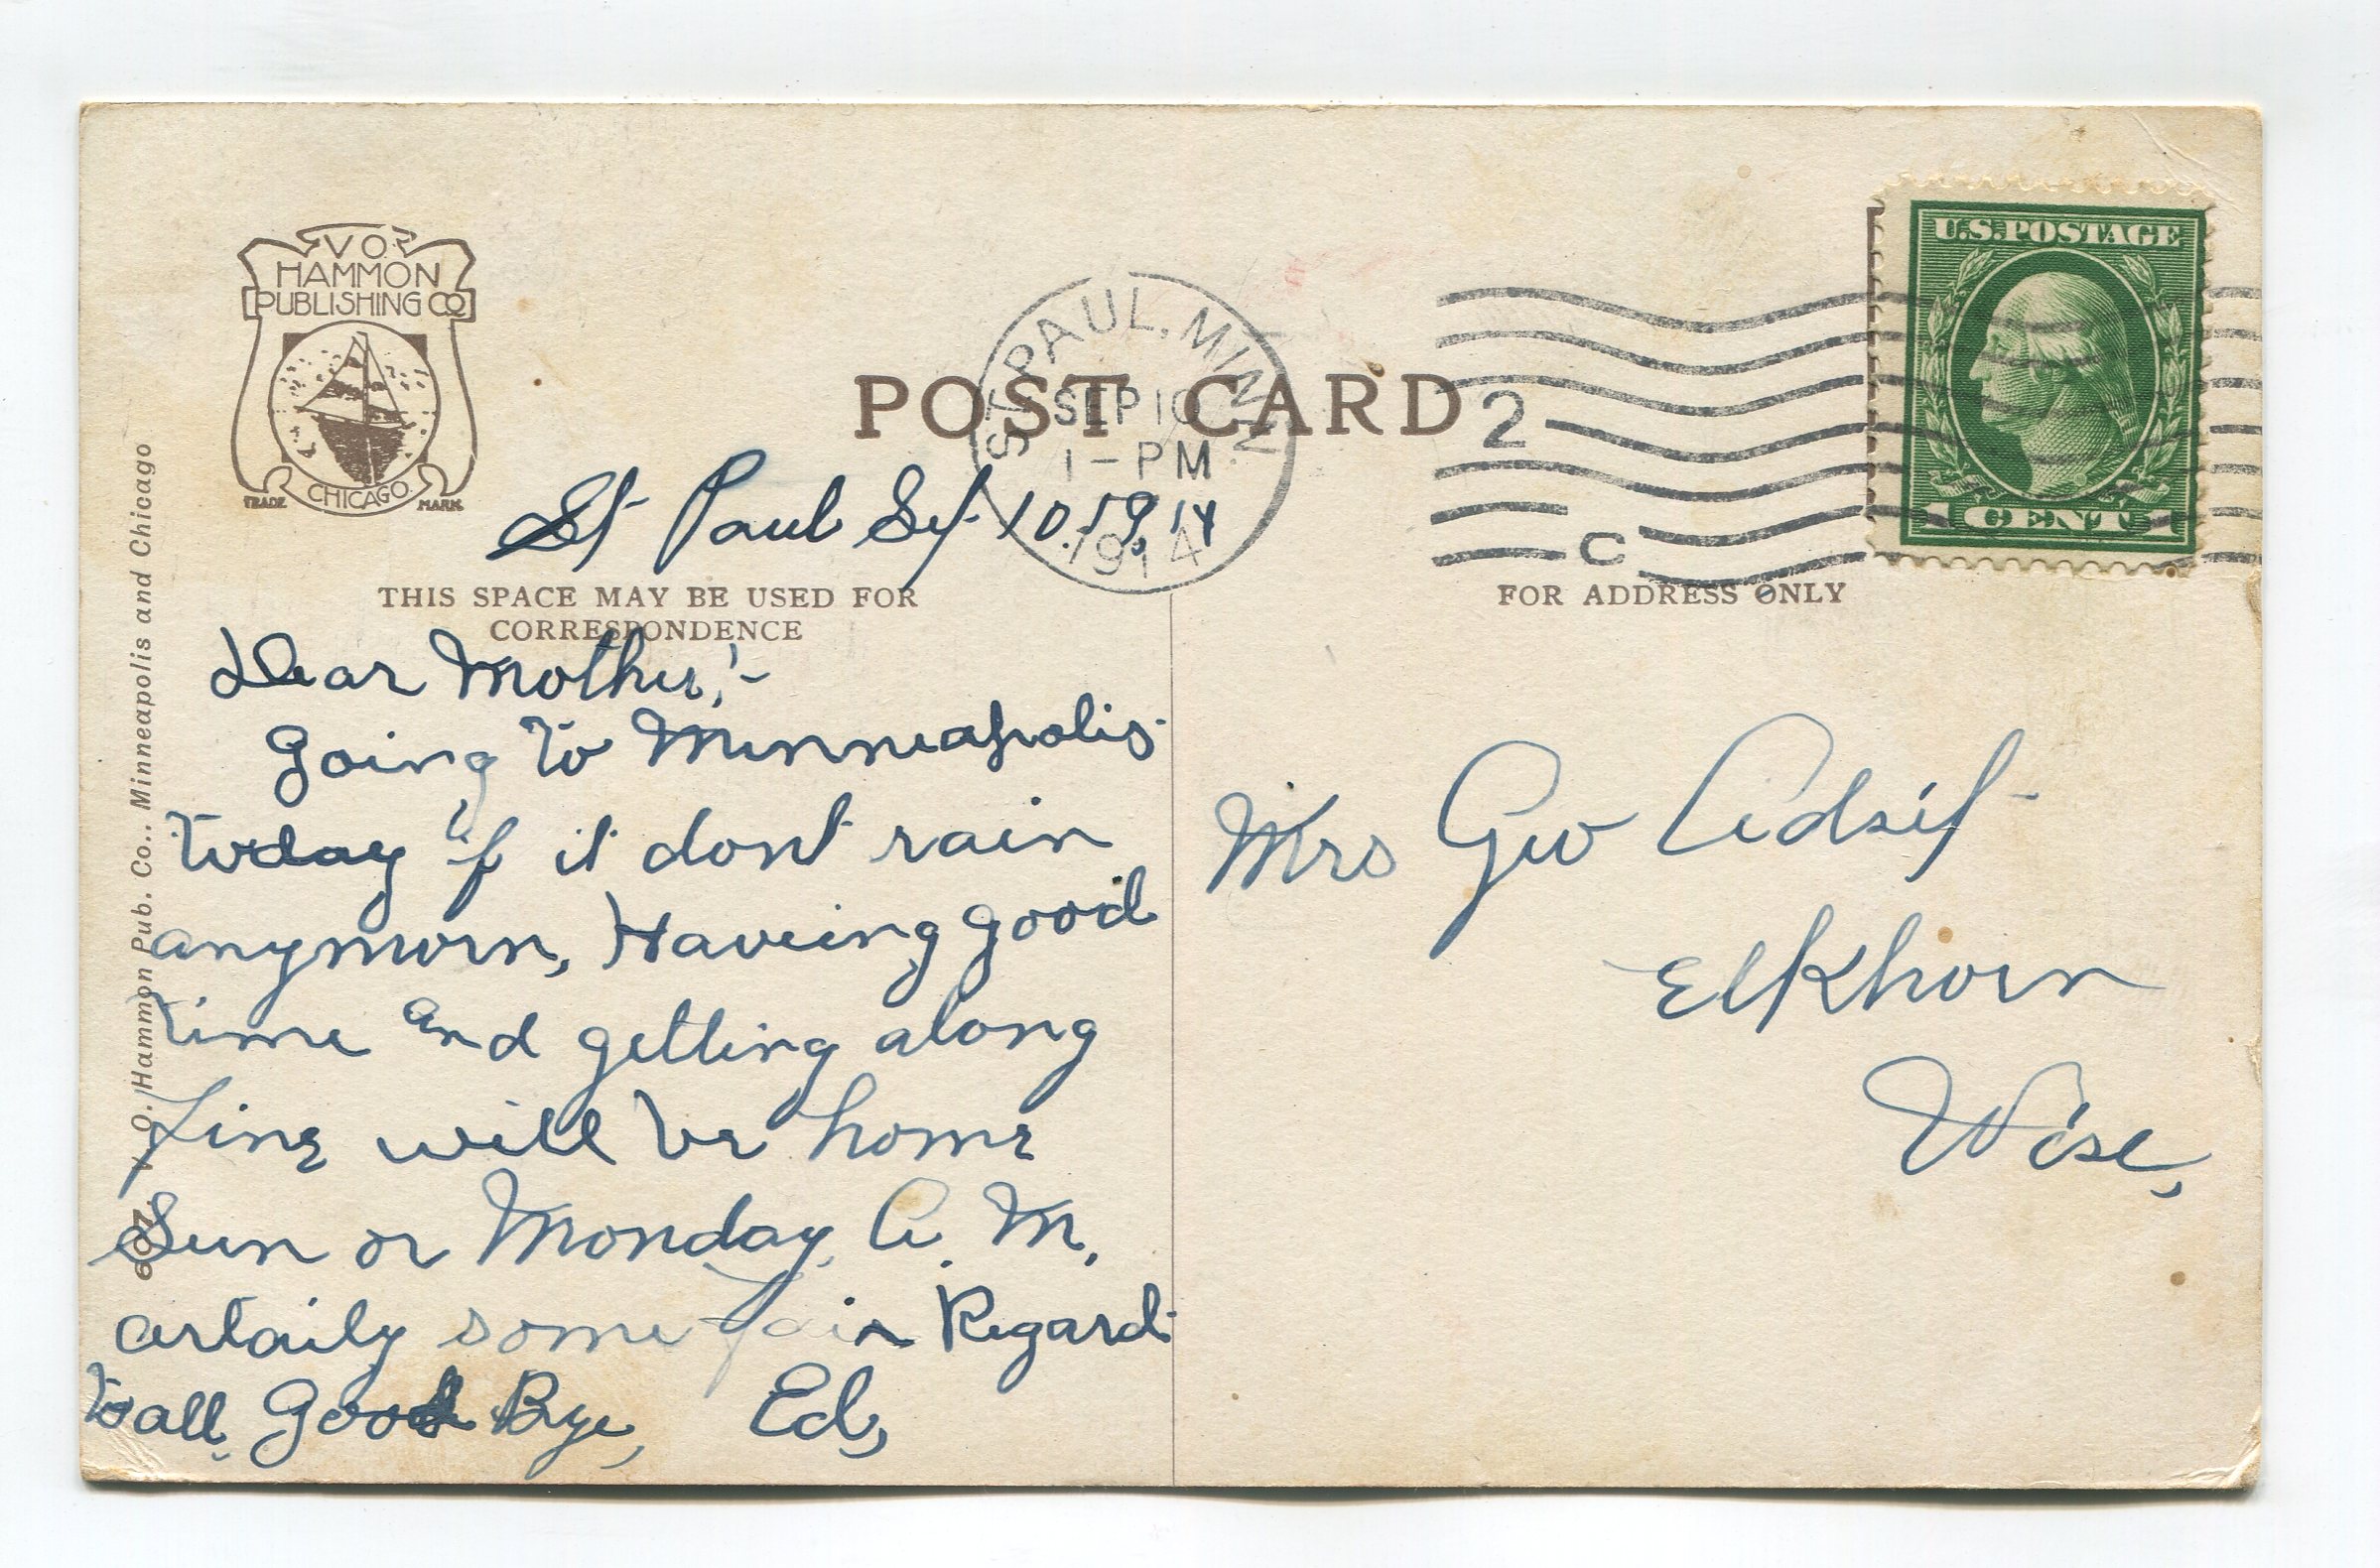 V.O.
HAMMON
PUBLISHING CO
CHICAGO
TRADE MARK
POST CARD
ST. PAUL, MINN.
SEP 10
1-PM
1914
2
C
U.S. POSTAGE
1 CENT 1
St Paul Sep 10. 19, 14
THIS SPACE MAY BE USED FOR
CORRESPONDENCE
FOR ADDRESS ONLY
Dear Mother,!-
Going to Minneapolis
today if it dont rain
anymorn, Haveing good
time and getting along
fine will be home
Sun or Monday, A. M.
certaily some fair Regard
to all, Good Bye, Ed,
Mrs Geo Adsit
Elkhorn
Wisc,
V. O. Hammon Pub. Co., Minneapolis and Chicago